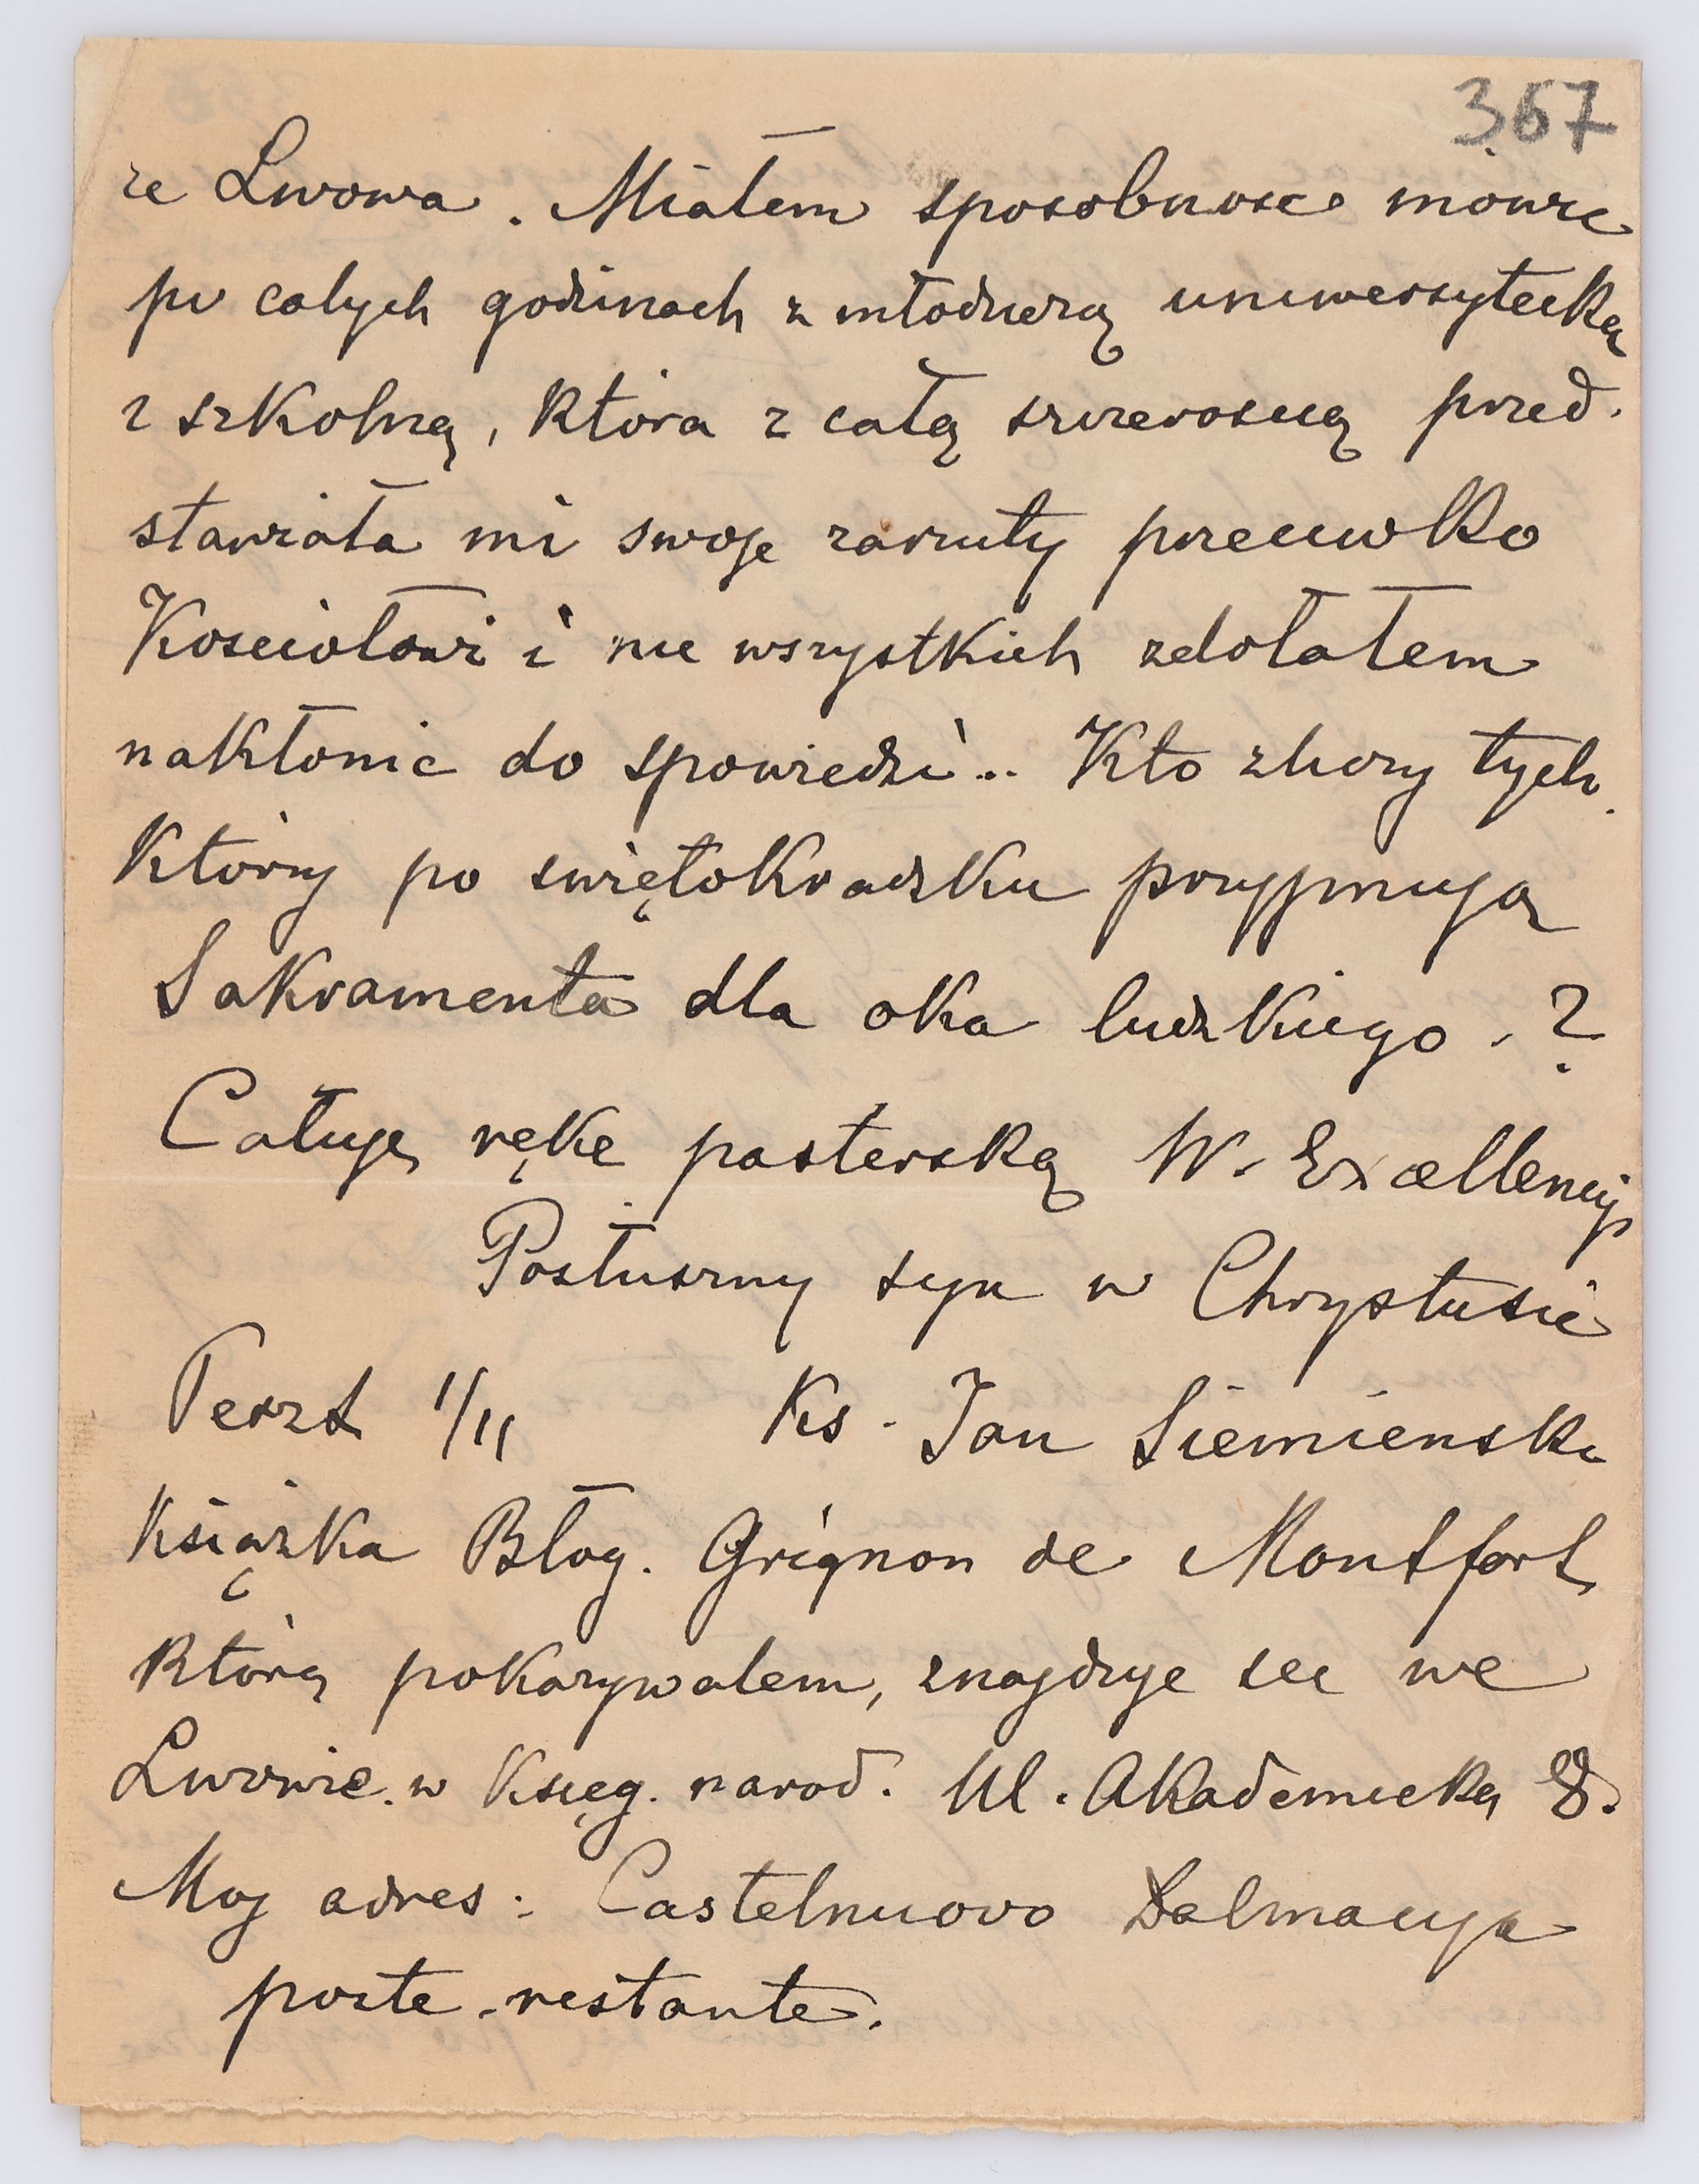 367
ze Lwowa. Miałem sposobnosc mówic
po calych godzinach z młodzierzą uniwersytecką
i szkolną, która z całą szczeroscią przed-
stawiała mi swoje zarzuty przeciwko
Kosciołowi i nie wszystkich zdołałem
nakłonic do spowiedzi... Kto zliczy tych
którzy po swiętokradzku przyjmują
Sakramenta dla oka ludzkiego.?
Całuję rękę pasterską W. Excellencyi
Posłuszny syn w Chrystusie
Peszt 1/II Ks. Jan Siemienski
Książka Błog. Grignon de Montfort
którą pokazywalem, znajdzye się we
Lwowie w Księg. narod. Ul. Akademicka 8.
Moj adres: Castelnuovo Dalmacya
poste-restante.